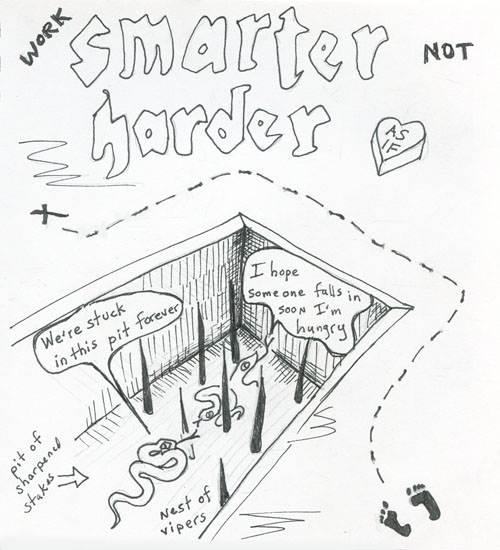 WORK
smarter
NOT
harder
AS
IF
I hope
someone falls in
soon I'm
hungry
We're stuck
in this pit forever
pit of
sharpened
stakes
Nest of
vipers